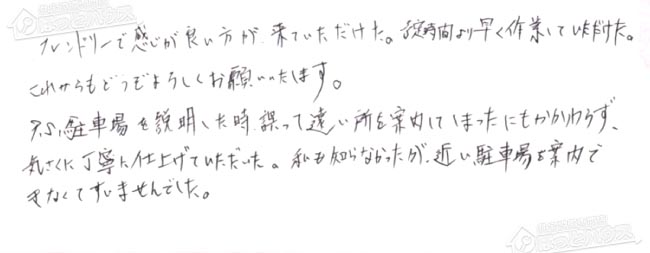 フレンドリーで感じが良い方が来ていただけた。予定時間より早く作業していただけた。
これからもどうぞよろしくお願いいたします。
P.S. 駐車場を説明した時、誤って遠い所を案内してしまったにもかかわらず、
気さくに丁寧に仕上げていただいた。私も知らなかったが、近い駐車場を案内で
きなくてすいませんでした。